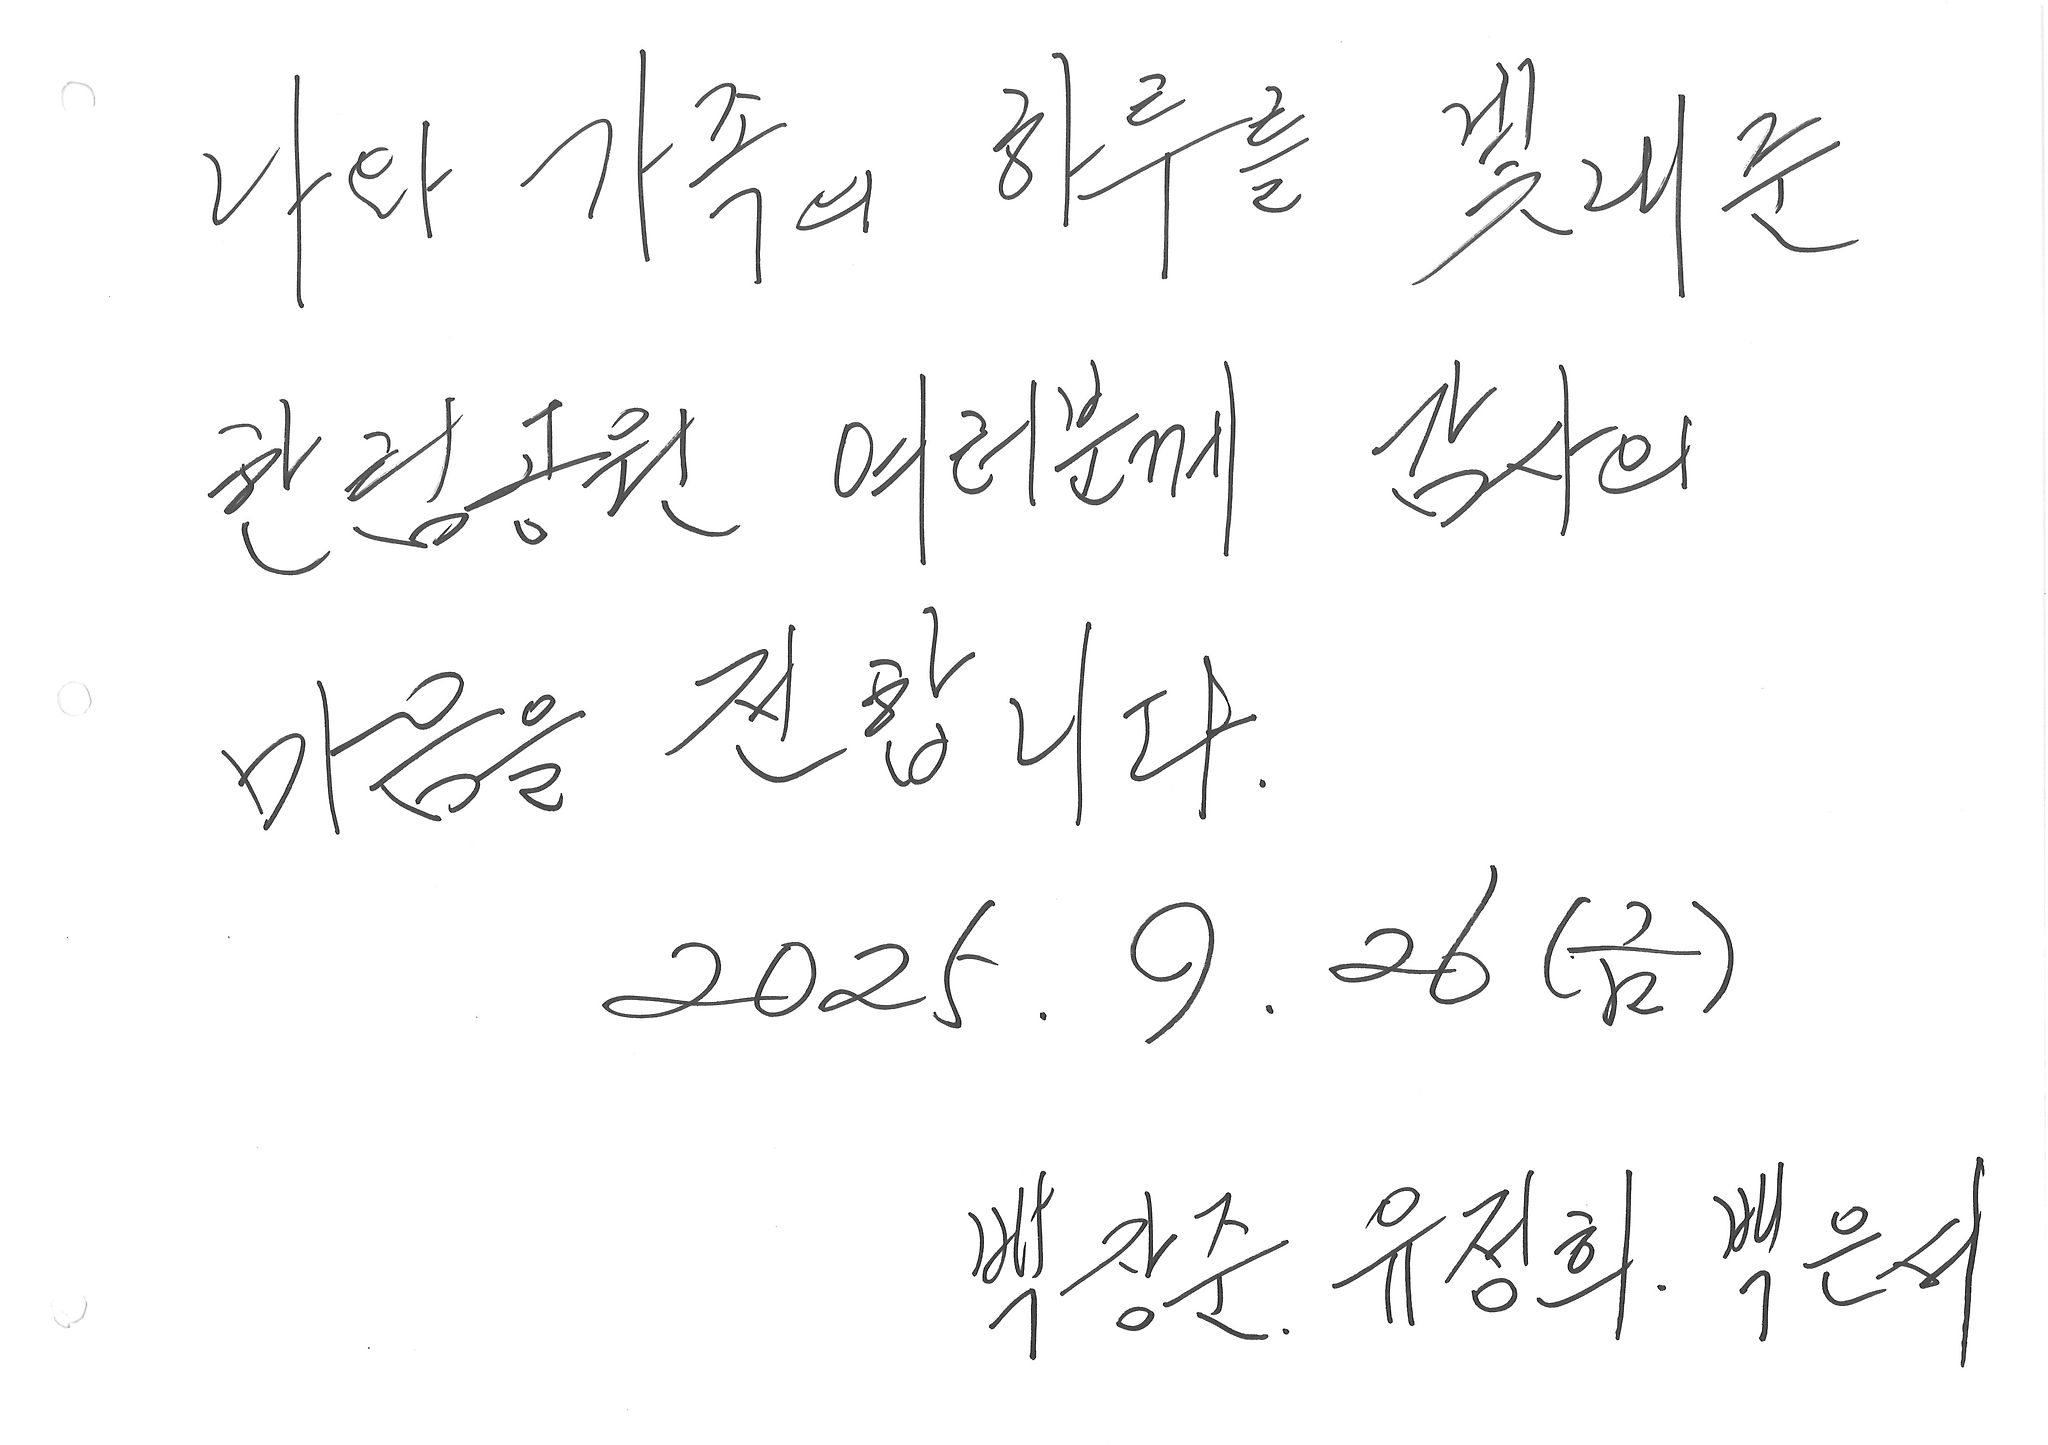 나와 가족의 하루를 빛내준
한림공원 여러분께 감사의
마음을 전합니다.
2025. 9. 26 (금)
백창준. 유정희. 백은서